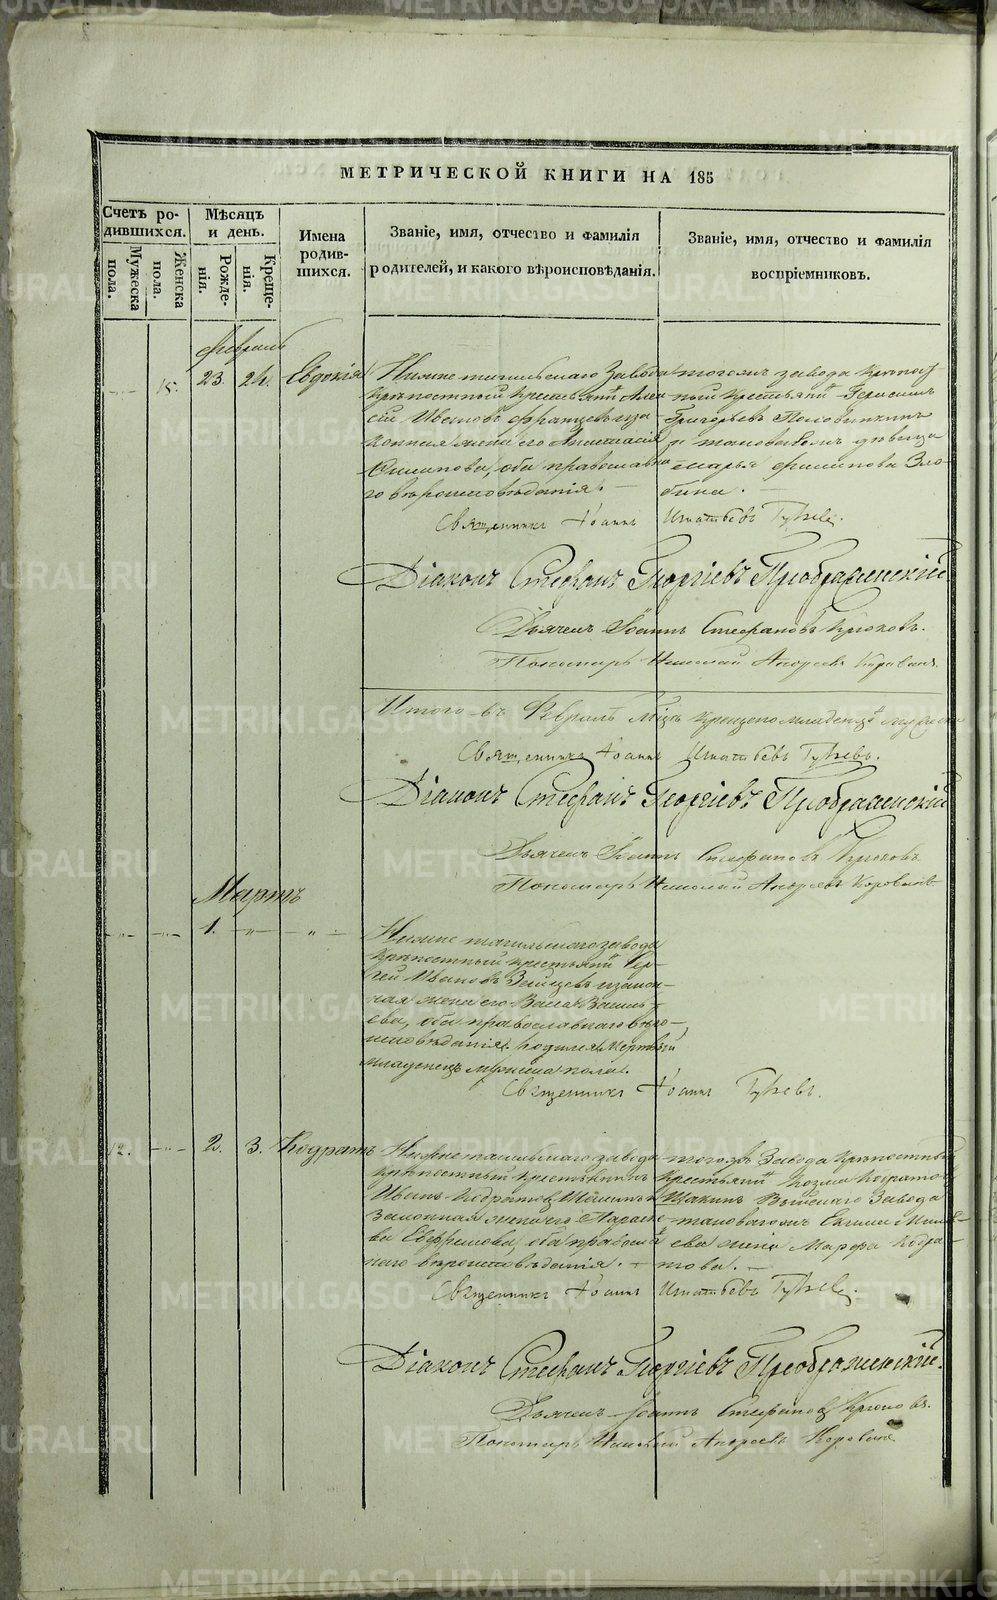 МЕТРИЧЕСКОЙ КНИГИ НА 185
Счетъ ро-
дившихся.
Мужеска
пола.
Женска
пола.
Мѣсяцъ
и день.
Рожде-
нія.
Креще-
нія.
Имена
родив-
шихся.
Званіе, имя, отчество и фамилія
родителей, и какого вѣроисповѣданія.
Званіе, имя, отчество и фамилія
воспріемниковъ.
Февраль
15. 23. 24. Евдокія
Нижне тагильскаго завода
крѣпостный крестьянинъ
Ивановъ
конная жена его Анастасія
Филипова, оба православна
го вѣроисповѣданія. —
тогожъ завода крѣпост
ный крестьянинъ Герасимъ
Григорьевъ Половинкинъ
и таковагожъ дѣвица
Марья Филипова Зло-
бина. —
Священникъ Іоаннъ Игнатьевъ
Діаконъ Стефанъ Георгіевъ Преображенскій
Дьячекъ Іоаннъ Стефановъ Крюковъ.
Пономарь Николай Андреевъ
Итого въ Февралѣ
Священникъ Іоаннъ Игнатьевъ
Діаконъ Стефанъ Георгіевъ Преображенскій
Дьячекъ Іоаннъ Стефановъ Крюковъ
Пономарь Николай Андреевъ
Мартъ
1.
Нижне тагильскаго завода
крѣпостный крестьянинъ Сер-
гей Ивановъ Зайцевъ и закон-
ная жена его Васса Василь-
ева, оба православнаго вѣро-
исповѣданія. родился мертвый
младенецъ мужеска пола.
Священникъ Іоаннъ
12. 2. 3. Кодратъ
Нижне тагильскаго завода
крѣпостный крестьянинъ
Иванъ Кодратовъ
законная жена его Параске-
ва Ефремова, оба православ
наго вѣроисповѣданія. —
тогожъ завода крѣпостный
крестьянинъ Козма Кодратовъ
Выйскаго завода
таковагожъ
ева жена Марфа Кодра-
това. —
Священникъ Іоаннъ Игнатьевъ
Діаконъ Стефанъ Георгіевъ Преображенскій.
Дьячекъ Іоаннъ Стефановъ Крюковъ.
Пономарь Николай Андреевъ
METRIKI.GASO-URAL.RU